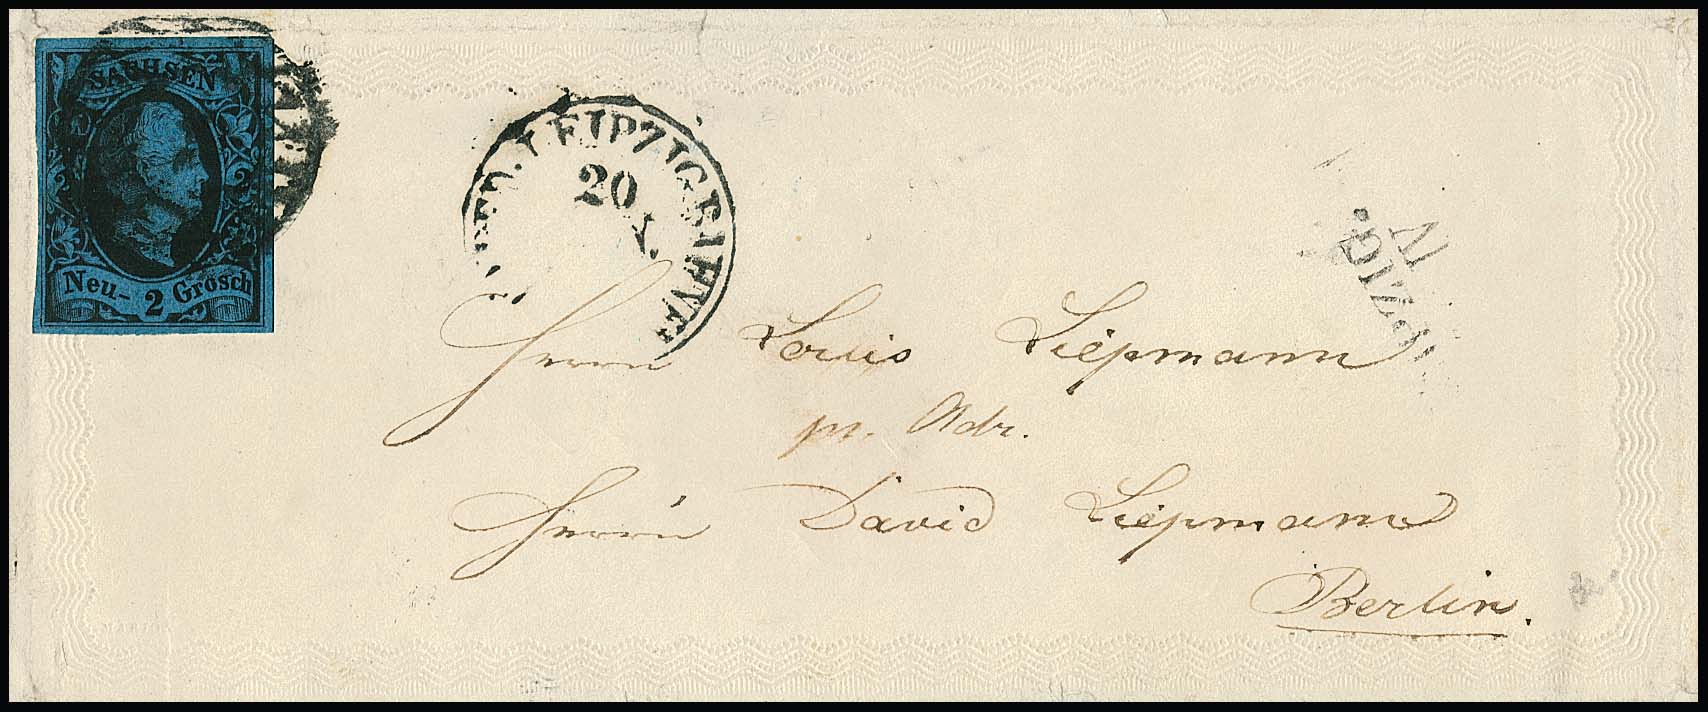 SACHSEN
Neu- 2 Grosch
LEIPZIG BAHNH
20
IV
PZIG.
Herrn Louis Liepmann
pr. Adr.
Herrn David Liepmann
Berlin.